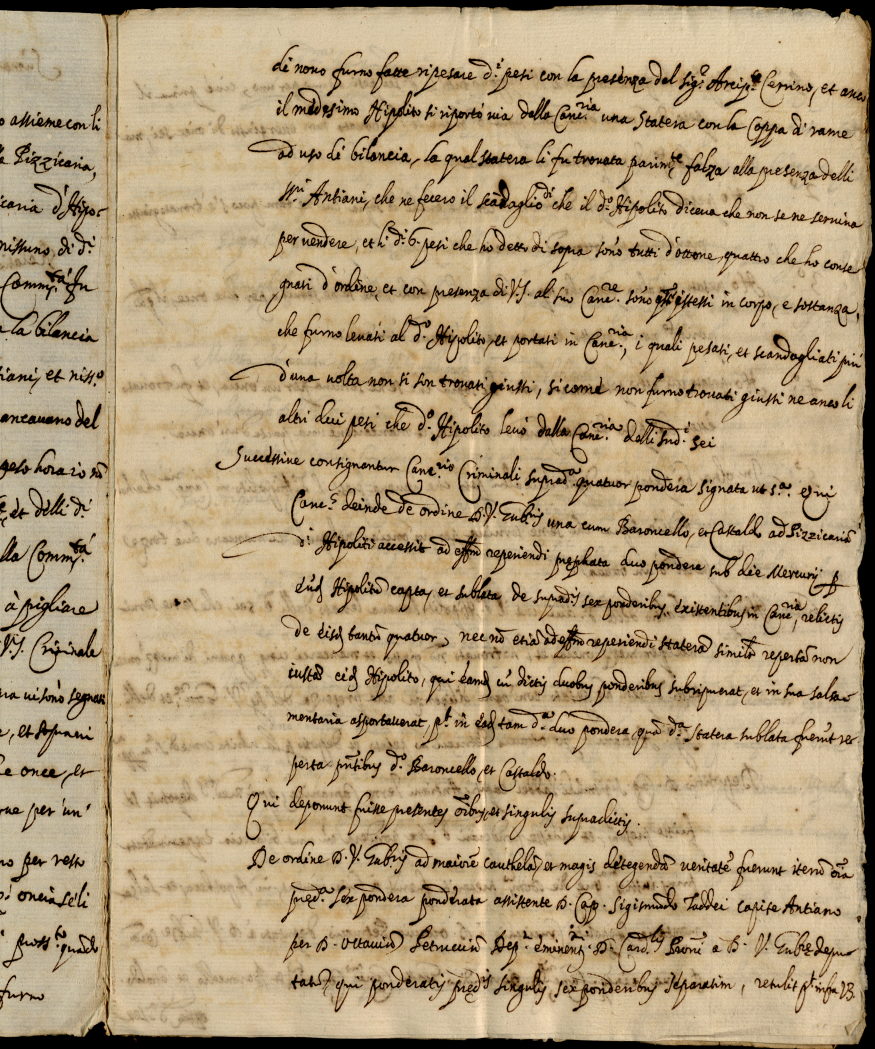 o assieme con li
Pizzicaria,
icaria d'Hipo-
nissuno, di d.i
Comm.tà fu
la bilancia
tiani, et niss.o
ancavano del
peso horario
et delli d.i
lla Comm.tà
à pigliare
V.S. Criminale
ra ui sono segnati
, et
le once, et
per un'
no per resto
oncia se li
quando
furno
di novo furno fatte ripesare d.i pesi con la presenza del Sig.r Arcip.te Cerrino, et anco
il medesimo Hipolito si riportò uia dalla Canc.ria una Statera con la Coppa di rame
ad uso di bilancia, la qual statera li fu trouata parim.te falza alla presenza delli
SS.ri Antiani, che ne fecero il scandaglio di che il d.o Hipolito diceua che non se ne seruiua
per uendere, et li d.i 6. pesi che ho detto di sopra sono tutti d'ottone, quattro che ho conse
gnati d'ordine, et con presenza di V.S. al suo Canc.re sono gl'istessi in corpo, e sostanza,
che furno leuati al d.o Hipolito, et portati in Canc.ria, i quali pesati, et scandagliati più
d'una uolta non si son trouati giusti, si come non furno trouati giusti ne anco li
altri doi pesi che d.o Hipolito leuò dalla Canc.ria delli sud.i sei
Successiue consignantur Canc.rio Criminali suprad.a quatuor pondera signata ut s.a Qui
Canc.s deinde de ordine D. V. Gub.ris una cum Baroncello, et Castaldo ad Pizzicariã
d.i Hipoliti accessit ad eff.m reperiendi prephata duo pondera sub die Mercurij p
eũd Hipolitũ capta, et sublata de suprad.is sex ponderibus existentibus in Canc.ria, relictis
de eisd tantũ quatuor, nec nõ etiã ad eff.m reperiendi staterã simil.r repertã non
iustã eid Hipolito, qui eamd cũ dictis duobus ponderibus subripuerat, et in sua salsa-
mentaria asportauerat, p.t in eãd tam d.a duo pondera, quã d.a statera sublata fuerũt re
perta pñtibus d.o Baroncello, et Castaldo.
Qui deponunt fuisse presentes oĩbus, et singulis supradictis.
De ordine D. V. Gub.ris ad maiorẽ cauthelã, et magis detegendã ueritatẽ fuerunt iterũ oĩa
pred.a sex pondera ponderata assistente D. Cap. Sigismundo Taddei capite Antiano
per D. Octauiũ Petrucciũ Dep.m Eminent.mi D. Card.lis a D. V. Gub.re depu-
tatũ, qui ponderatis pred.is singulis sex ponderibus separatim, retulit p.t infra